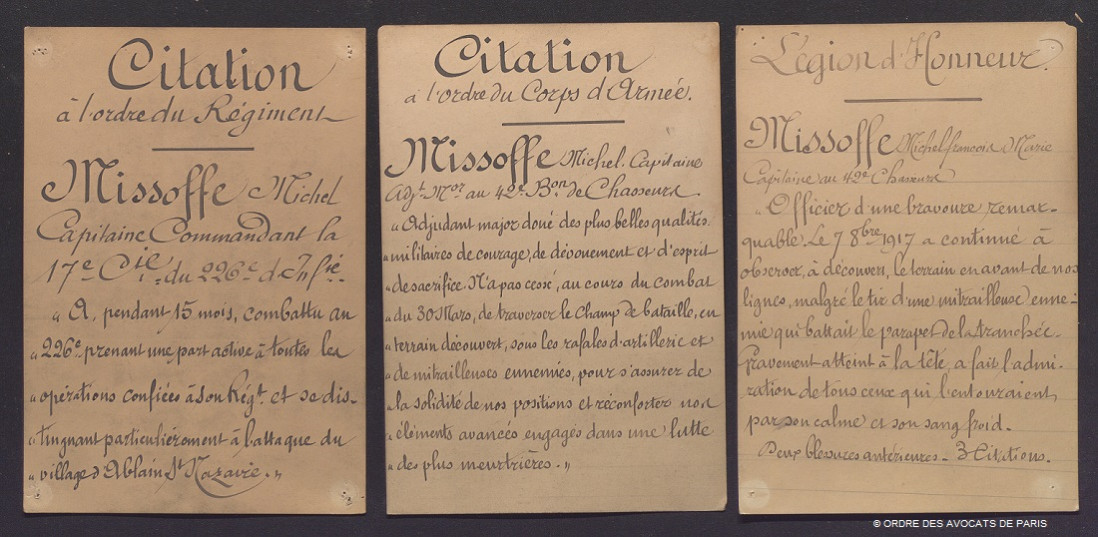 Citation
à l'ordre du Régiment
Missoffe Michel
Capitaine Commandant la
17e Cie du 226e d'Infie.
" A, pendant 15 mois, combattu au
" 226e prenant une part active à toutes les
" opérations confiées à son Régt. et se dis-
" tingnant particulièrement à l'attaque du
" village d'Ablain St Nazaire. "
Citation
à l'ordre du Corps d'Armée.
Missoffe Michel. Capitaine
Adjt. Mor au 42e Bon de Chasseurs
" Adjudant major doué des plus belles qualités
" militaires de courage, de dévouement et d'esprit
" de sacrifice. N'a pas cessé, au cours du combat
" du 30 Mars, de traverser le Champ de bataille, en
" terrain découvert, sous les rafales d'artillerie et
" de mitrailleuses ennemies, pour s'assurer de
" la solidité de nos positions et réconforter nos
" éléments avancés engagés dans une lutte
" des plus meurtrières. "
Légion d'Honneur.
Missoffe Michel francois Marie
Capitaine au 42e Chasseurs
" Officier d'une bravoure remar-
quable. Le 7 8bre 1917 a continué à
observer, à découvert, le terrain en avant de nos
lignes, malgré le tir d'une mitrailleuse enne-
mie qui battait le parapet de la tranchée.
Gravement atteint à la tête, a fait l'admi-
ration de tous ceux qui l'entouraient
par son calme et son sang froid.
Deux blessures antérieures - 3 Citations.
© ORDRE DES AVOCATS DE PARIS